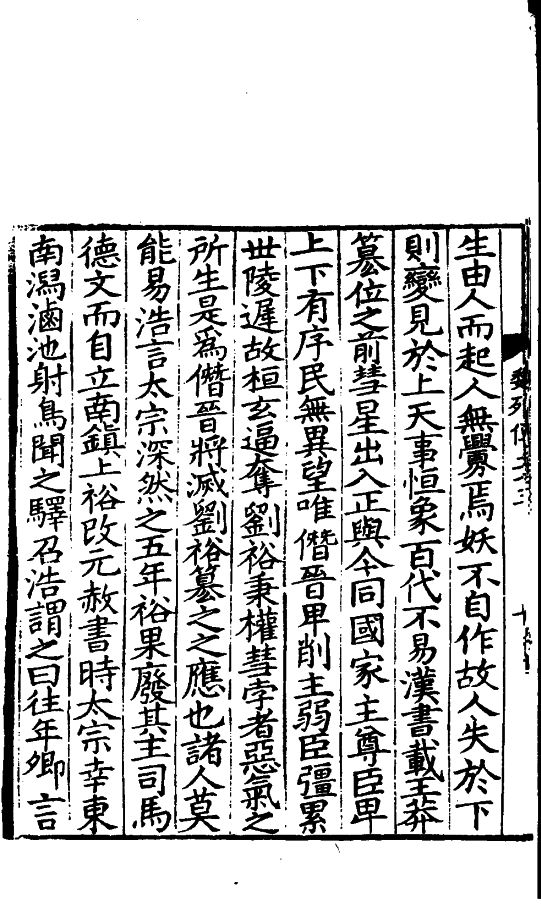 生由人而起人無舋焉妖不自作故人失於下
則變見於上天事恒象百代不易漢書載王莽
簒位之前彗星出入正與今同國家主尊臣卑
上下有序民無異望唯僭晉卑削主弱臣彊累
世陵遲故桓玄逼奪劉裕秉權彗孛者惡氣之
所生是爲僭晉將滅劉裕簒之之應也諸人莫
能易浩言太宗深然之五年裕果廢其主司馬
德文而自立南鎮上裕改元赦書時太宗幸東
南潟滷池射鳥聞之驛召浩謂之曰往年卿言